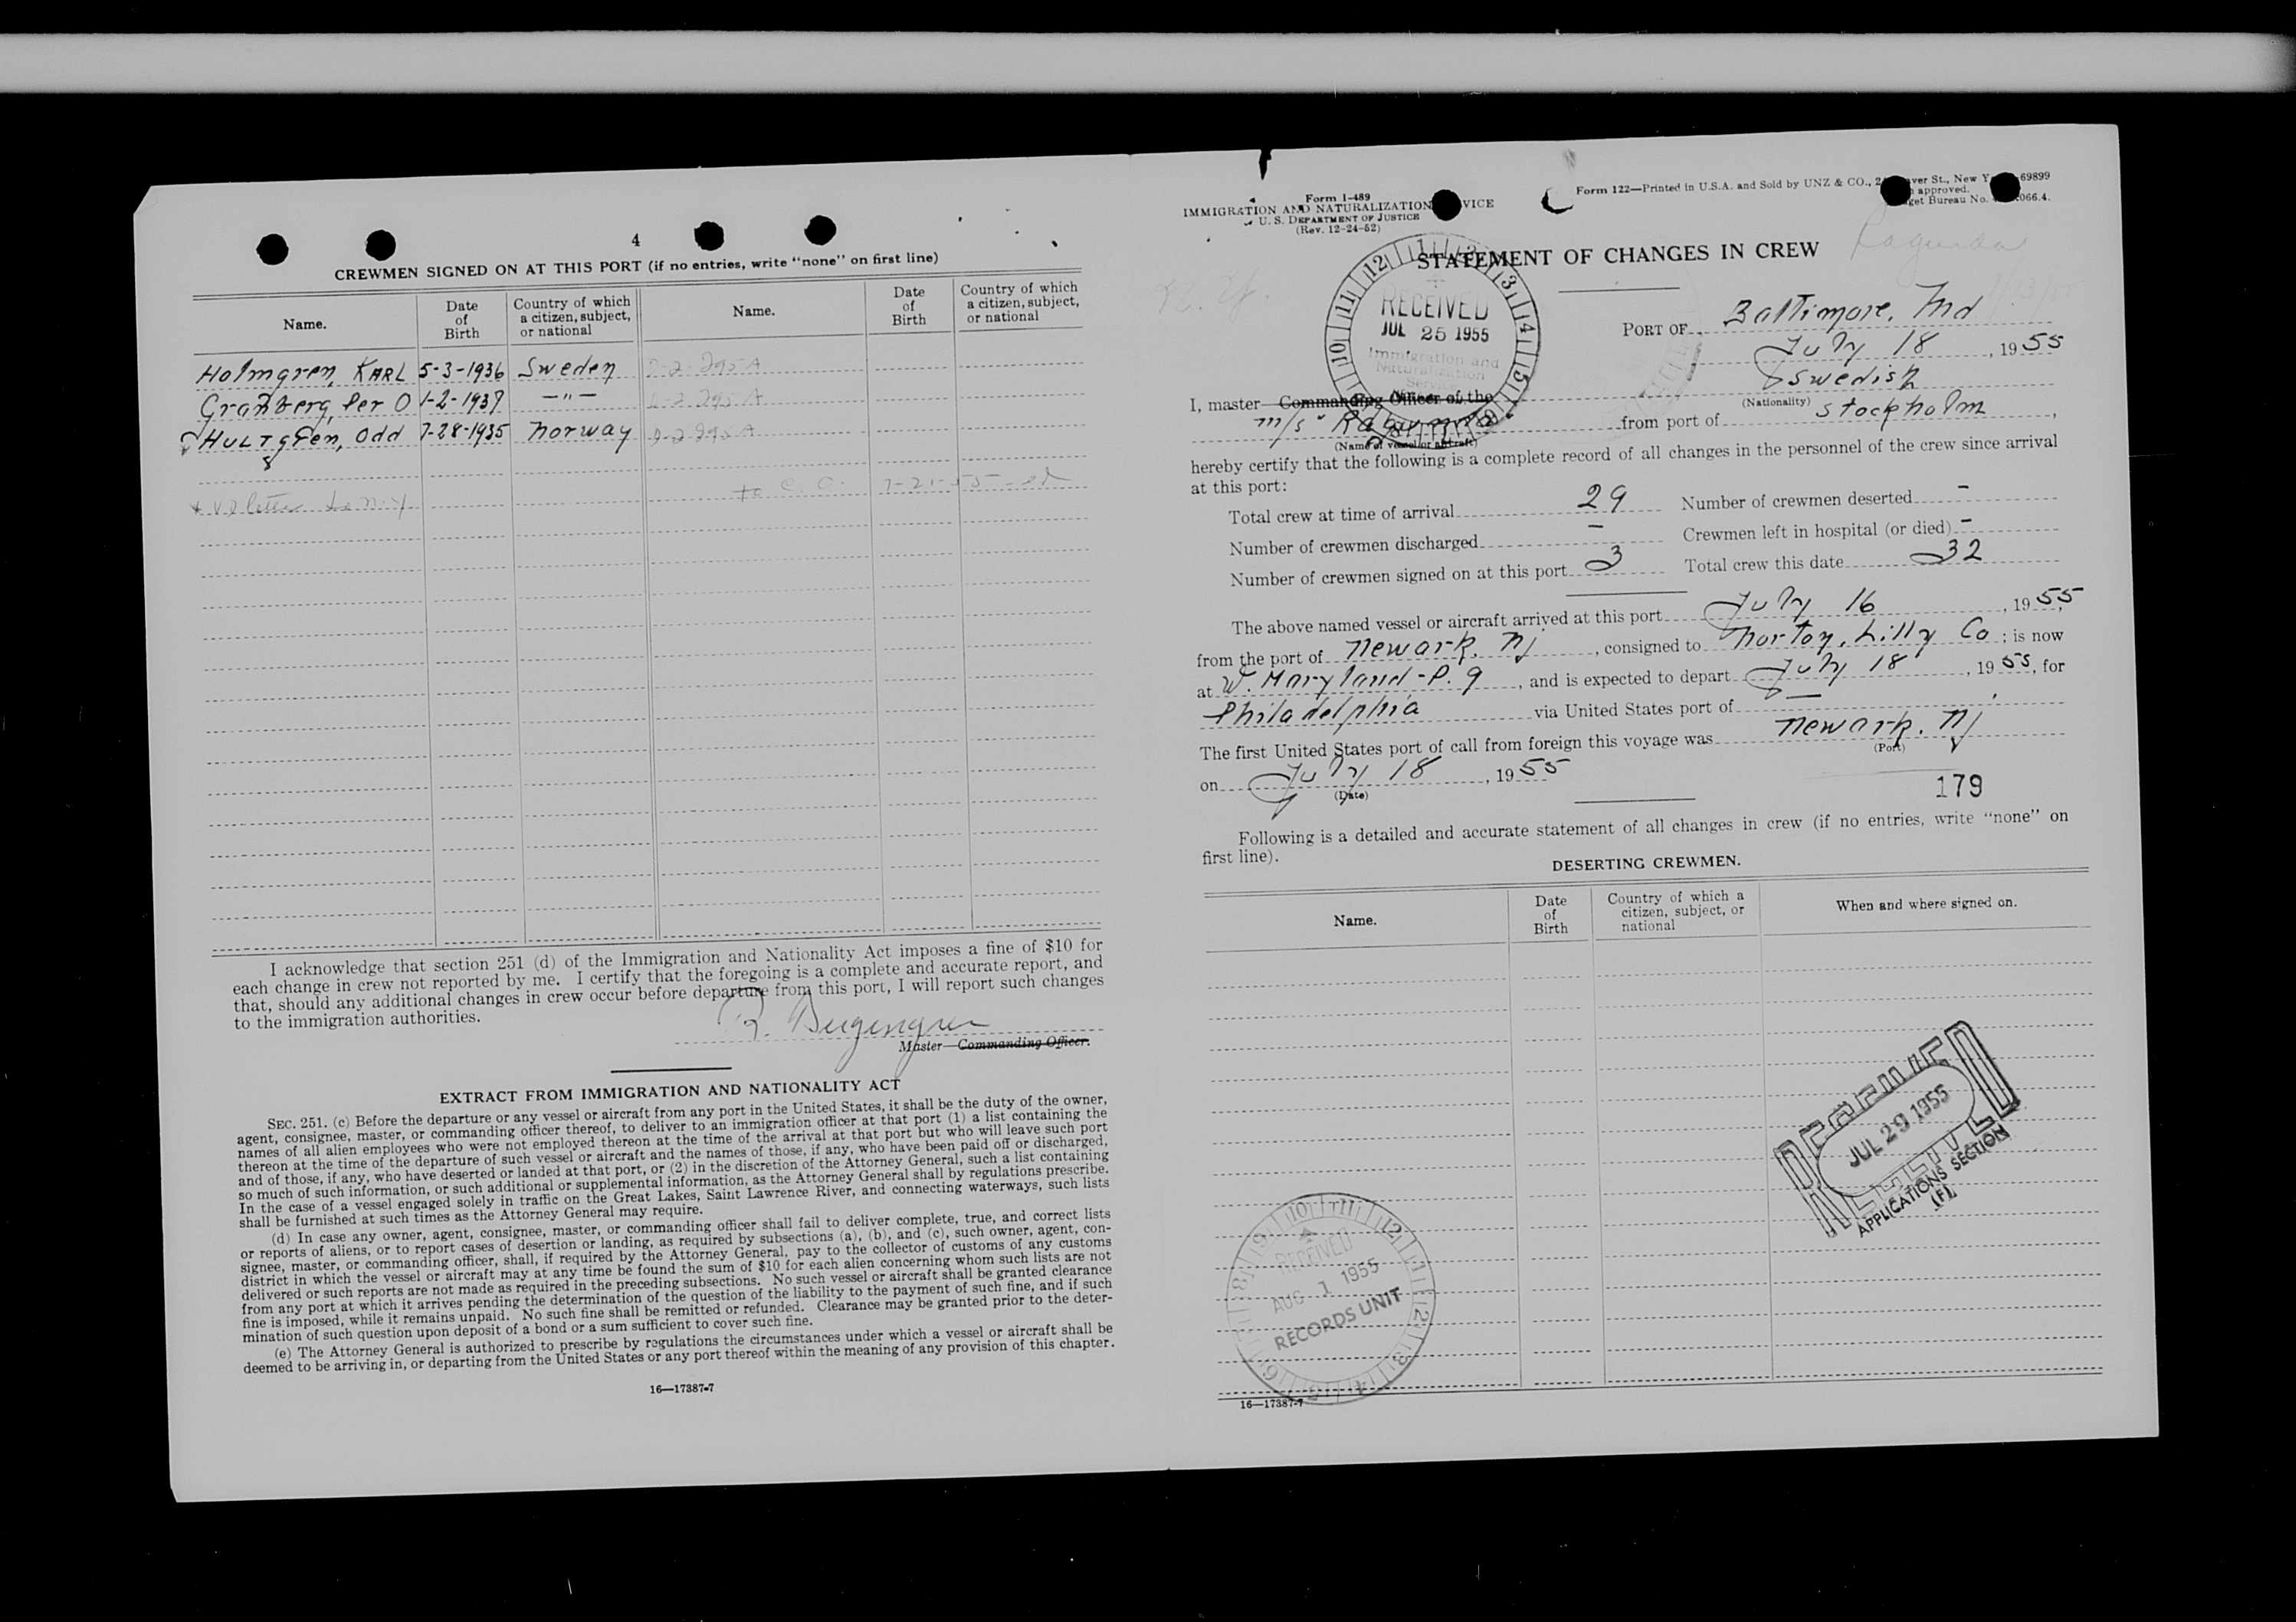 4
CREWMEN SIGNED ON AT THIS PORT (if no entries, write “none” on first line)
Name.
Date of Birth
Country of which a citizen, subject, or national
Name.
Date of Birth
Country of which a citizen, subject, or national
Holmgren, KARL 5-3-1936 Sweden 2-2-295A
Granberg, Per O 1-2-1937 —"— 2-2-295A
HULTgren, Odd 7-28-1935 Norway 2-2-295A
letter to N.Y. to C.O. 7-21-55
I acknowledge that section 251 (d) of the Immigration and Nationality Act imposes a fine of $10 for
each change in crew not reported by me. I certify that the foregoing is a complete and accurate report, and
that, should any additional changes in crew occur before departure from this port, I will report such changes
to the immigration authorities.
Master—Commanding Officer.
EXTRACT FROM IMMIGRATION AND NATIONALITY ACT
SEC. 251. (c) Before the departure or any vessel or aircraft from any port in the United States, it shall be the duty of the owner,
agent, consignee, master, or commanding officer thereof, to deliver to an immigration officer at that port (1) a list containing the
names of all alien employees who were not employed thereon at the time of the arrival at that port but who will leave such port
thereon at the time of the departure of such vessel or aircraft and the names of those, if any, who have been paid off or discharged,
and of those, if any, who have deserted or landed at that port, or (2) in the discretion of the Attorney General, such a list containing
so much of such information, or such additional or supplemental information, as the Attorney General shall by regulations prescribe.
In the case of a vessel engaged solely in traffic on the Great Lakes, Saint Lawrence River, and connecting waterways, such lists
shall be furnished at such times as the Attorney General may require.
(d) In case any owner, agent, consignee, master, or commanding officer shall fail to deliver complete, true, and correct lists
or reports of aliens, or to report cases of desertion or landing, as required by subsections (a), (b), and (c), such owner, agent, con-
signee, master, or commanding officer, shall, if required by the Attorney General, pay to the collector of customs of any customs
district in which the vessel or aircraft may at any time be found the sum of $10 for each alien concerning whom such lists are not
delivered or such reports are not made as required in the preceding subsections. No such vessel or aircraft shall be granted clearance
from any port at which it arrives pending the determination of the question of the liability to the payment of such fine, and if such
fine is imposed, while it remains unpaid. No such fine shall be remitted or refunded. Clearance may be granted prior to the deter-
mination of such question upon deposit of a bond or a sum sufficient to cover such fine.
(e) The Attorney General is authorized to prescribe by regulations the circumstances under which a vessel or aircraft shall be
deemed to be arriving in, or departing from the United States or any port thereof within the meaning of any provision of this chapter.
16—17387-7
Form I-489
IMMIGRATION AND NATURALIZATION VICE
U. S. DEPARTMENT OF JUSTICE
(Rev. 12-24-52)
Form 122—Printed in U.S.A. and Sold by UNZ & CO., 2 ver St., New Y 69899
approved.
get Bureau No. 066.4.
STATEMENT OF CHANGES IN CREW
RECEIVED
JUL 25 1955
Immigration and
Naturalization
Service
PORT OF Baltimore, Md
July 18, 1955
I, master—Commanding Officer of the Swedish
(Nationality)
m/s "Ragunda" from port of Stockholm,
(Name of vessel or aircraft)
hereby certify that the following is a complete record of all changes in the personnel of the crew since arrival
at this port:
Total crew at time of arrival 29 Number of crewmen deserted -
Number of crewmen discharged - Crewmen left in hospital (or died) -
Number of crewmen signed on at this port 3 Total crew this date 32
The above named vessel or aircraft arrived at this port July 16, 1955,
from the port of Newark, NJ, consigned to Norton, Lilly Co; is now
at W. Maryland - P. 9, and is expected to depart July 18, 1955, for
Philadelphia via United States port of —
The first United States port of call from foreign this voyage was Newark, NJ
(Port)
on July 18, 1955
(Date)
179
Following is a detailed and accurate statement of all changes in crew (if no entries, write “none” on
first line).
DESERTING CREWMEN.
Name.
Date of Birth
Country of which a citizen, subject, or national
When and where signed on.
RECEIVED
JUL 29 1955
APPLICATIONS SECTION
(F)
RECEIVED
AUG 1 1955
RECORDS UNIT
16—17387-7